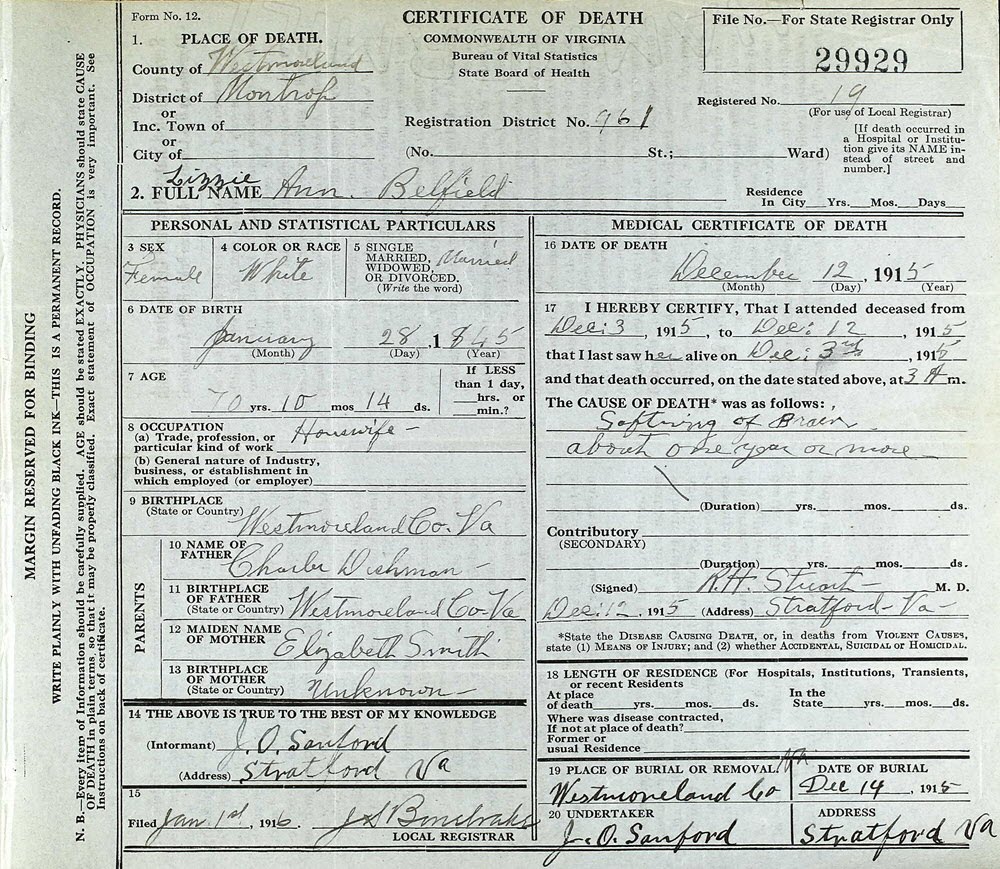 Form No. 12.
CERTIFICATE OF DEATH
COMMONWEALTH OF VIRGINIA
Bureau of Vital Statistics
State Board of Health
File No.—For State Registrar Only
29929
1. PLACE OF DEATH.
County of Westmoreland
District of Montross
or
Inc. Town of
or
City of
Registration District No. 961
(No. St.; Ward)
Registered No. 19
(For use of Local Registrar)
[If death occurred in
a Hospital or Institu-
tion give its NAME in-
stead of street and
number.]
Lizzie
2. FULL NAME Ann Belfield
Residence
In City Yrs. Mos. Days
PERSONAL AND STATISTICAL PARTICULARS
3 SEX
Female
4 COLOR OR RACE
White
5 SINGLE
MARRIED,
WIDOWED,
OR DIVORCED.
(Write the word)
Married
6 DATE OF BIRTH
January 28, 1845
(Month) (Day) (Year)
7 AGE
70 yrs. 10 mos 14 ds.
If LESS
than 1 day,
hrs. or
min.?
8 OCCUPATION
(a) Trade, profession, or
particular kind of work Houswife -
(b) General nature of Industry,
business, or establishment in
which employed (or employer)
9 BIRTHPLACE
(State or Country)
Westmoreland Co. Va
PARENTS
10 NAME OF
FATHER
Charles Dishman -
11 BIRTHPLACE
OF FATHER
(State or Country)
Westmoreland Co-Va
12 MAIDEN NAME
OF MOTHER
Elizabeth Smith
13 BIRTHPLACE
OF MOTHER
(State or Country)
Unknown -
14 THE ABOVE IS TRUE TO THE BEST OF MY KNOWLEDGE
(Informant) J. O. Sanford
(Address) Stratford Va
15
Filed Jan 1st, 1916
LOCAL REGISTRAR
MEDICAL CERTIFICATE OF DEATH
16 DATE OF DEATH
December 12, 1915
(Month) (Day) (Year)
17 I HEREBY CERTIFY, That I attended deceased from
Dec: 3 1915, to Dec: 12, 1915
that I last saw her alive on Dec: 3rd, 1915
and that death occurred, on the date stated above, at 3 A m.
The CAUSE OF DEATH* was as follows:
Softning of Brain
about one year or more
(Duration) yrs. mos. ds.
Contributory
(SECONDARY)
(Duration) yrs. mos. ds.
(Signed) R.H. Stuart - M. D.
Dec: 12, 1915 (Address) Stratford - Va -
*State the DISEASE CAUSING DEATH, or, in deaths from VIOLENT CAUSES,
state (1) MEANS OF INJURY; and (2) whether ACCIDENTAL, SUICIDAL or HOMICIDAL.
18 LENGTH OF RESIDENCE (For Hospitals, Institutions, Transients,
or recent Residents
At place In the
of death yrs. mos. ds. State yrs. mos. ds.
Where was disease contracted,
If not at place of death?
Former or
usual Residence
19 PLACE OF BURIAL OR REMOVAL Va
Westmoreland Co
DATE OF BURIAL
Dec 14, 1915
20 UNDERTAKER
J. O. Sanford
ADDRESS
Stratford Va
MARGIN RESERVED FOR BINDING
WRITE PLAINLY WITH UNFADING BLACK INK—THIS IS A PERMANENT RECORD.
N. B.—Every item of Information should be carefully supplied. AGE should be stated EXACTLY. PHYSICIANS should state CAUSE
OF DEATH in plain terms, so that it may be properly classified. Exact statement of OCCUPATION is very important. See
Instructions on back of certificate.